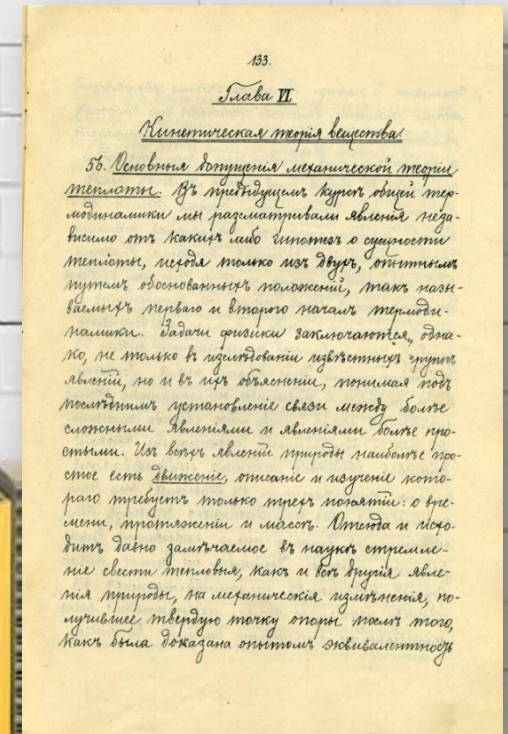 133.
Глава VI.
Кинетическая теорія вещества.
56. Основныя допущенія механической теоріи
теплоты. Въ предыдущемъ курсѣ общей тер-
модинамики мы разсматривали явленія неза-
висимо отъ какихъ либо гипотезъ о сущности
теплоты, исходя только изъ двухъ, опытнымъ
путемъ обоснованныхъ положеній, такъ назы-
ваемыхъ перваго и второго началъ термоди-
намики. Задачи физики заключаются, одна-
ко, не только въ изслѣдованіи извѣстныхъ группъ
явленій, но и въ ихъ объясненіи, понимая подъ
послѣднимъ установленіе связи между болѣе
сложными явленіями и явленіями болѣе про-
стыми. Изъ всѣхъ явленій природы наиболѣе про-
стое есть движеніе, описаніе и изученіе кото-
раго требуетъ только трехъ понятій: о вре-
мени, протяженіи и массѣ. Отсюда и исхо-
дитъ давно замѣчаемое въ наукѣ стремле-
ніе свести тепловыя, какъ и всѣ другія явле-
нія природы, на механическія измѣненія, по-
лучившее твердую точку опоры послѣ того,
какъ была доказана опытомъ эквивалентность